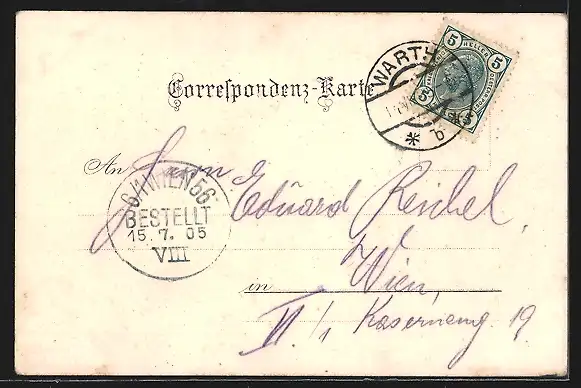 Correspondenz-Karte
WARTH
b
5 HELLER 5
5 5
An Herrn
Eduard Reichel
6/1 WIEN 56
BESTELLT
15. 7. 05
VIII
in Wien,
VI./1 Kaserneng. 19